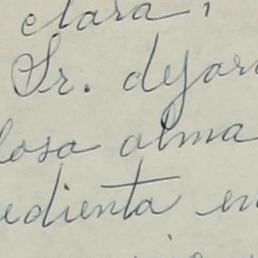 clara,
Sr. dejar
losa alma
edienta en